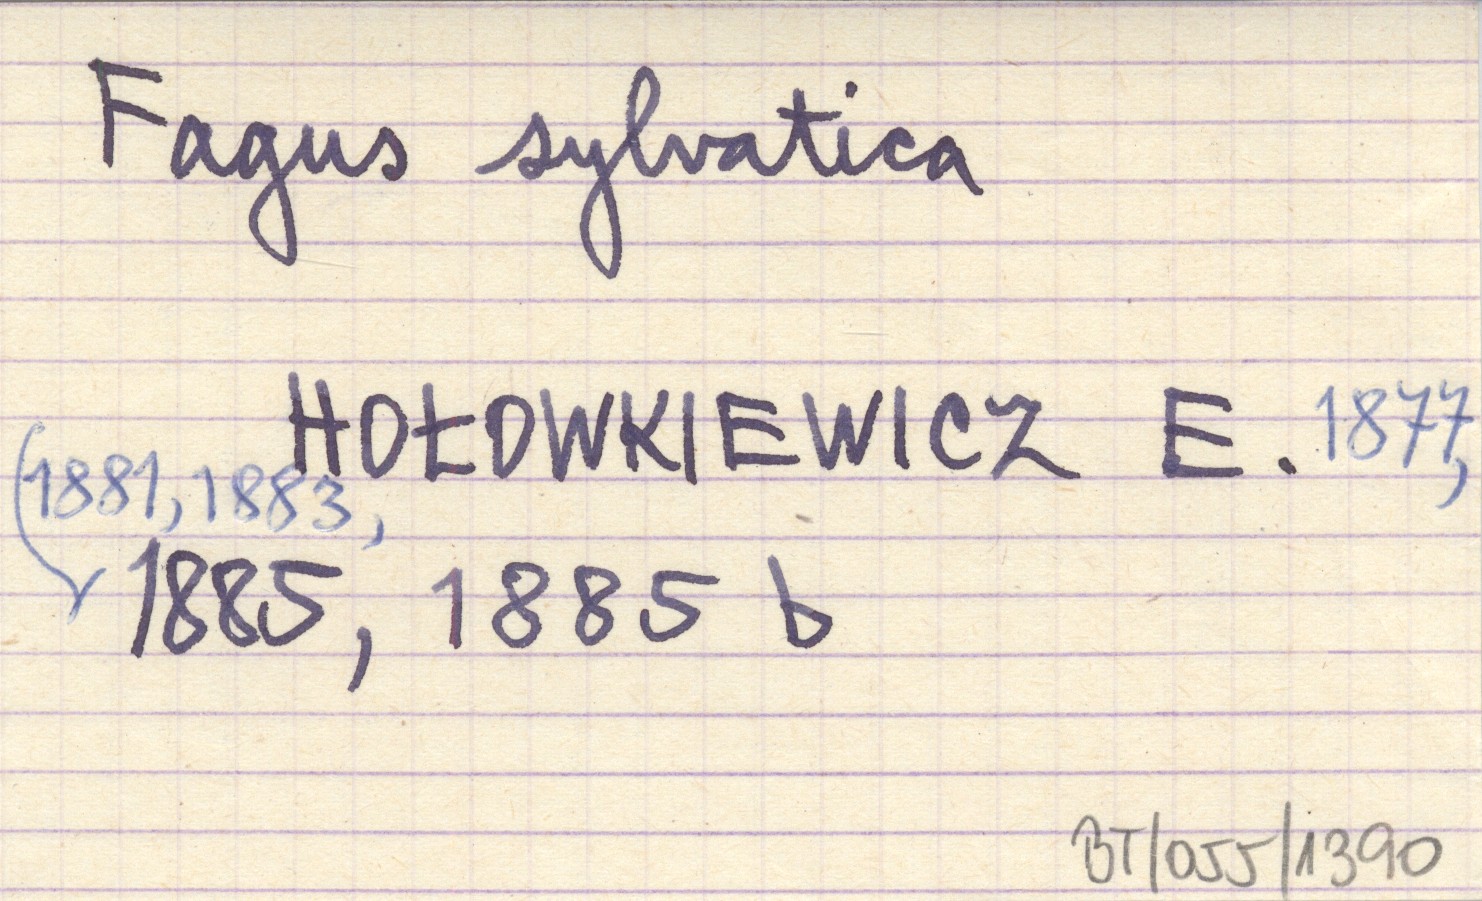 Fagus sylvatica
HOŁOWKIEWICZ E. 1877,
1881, 1883,
1885, 1885 b
BT/055/1390